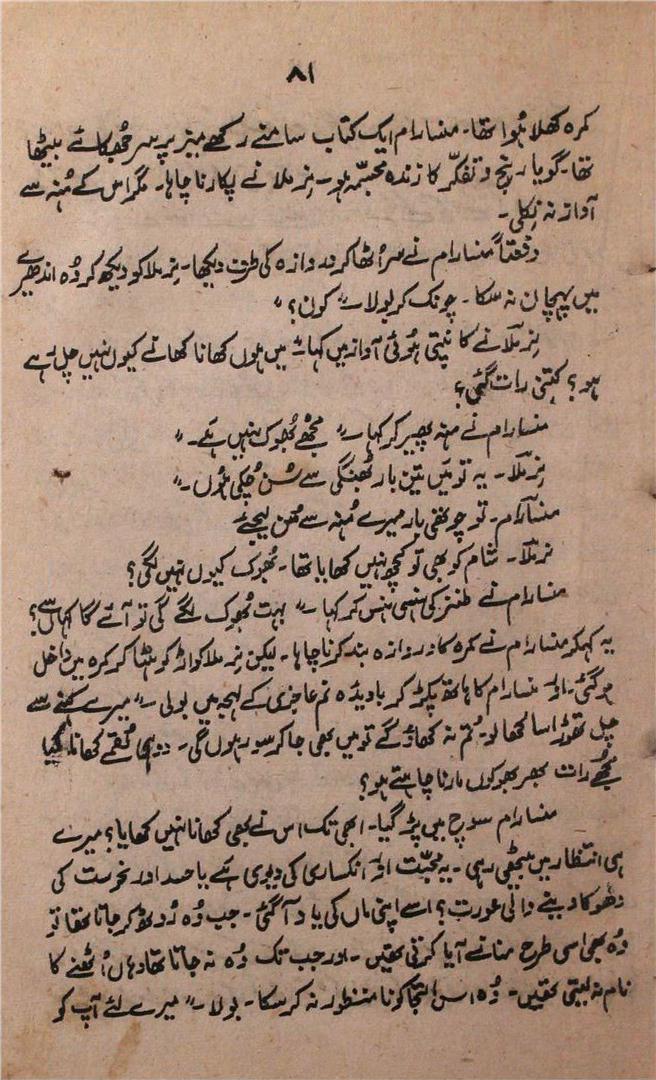 ۸۱
کمرہ کھلا ہُوا تھا۔ منسارام ایک کتاب سامنے رکھے میز پر سر جُھکائے بیٹھا
تھا۔ گویا رنج و تفکّر کا زندہ مجسّمہ ہو۔ نِرملا نے پکارنا چاہا۔ مگر اس کے مُنہ سے
آواز نہ نِکلی۔
دفعتاً منسارام نے سر اُٹھا کر دروازہ کی طرف دیکھا۔ نِرملا کو دیکھ کر وُہ اندھیرے
میں پہچان نہ سکا۔ چونک کر بولا۔ "کون؟"
نِرملا نے کانپتی ہُوئی آواز میں کہا۔ "میں ہوں کھانا کھانے کیوں نہیں چل رہے
ہو؟ کتنی رات گئی؟
منسارام نے منہ پھیر کر کہا۔ "مُجھے بُھوک نہیں ہَے۔"
نِرملا۔ یہ تو مَیں تین بار بُھنگی سے سُن چُکی ہُوں۔"
منسارام۔ تو چوتھی بار میرے مُنہ سے سُن لیجئے
نرملا۔ شام کو بھی تو کچھ نہیں کھایا تھا۔ بُھوک کیوں نہیں لگی؟
منسارام نے طنز کی ہنسی ہنس کر کہا۔ "بہت بُھوک لگے گی تو آئے گا کہاں سے؟
یہ کہکر منسارام نے کمرہ کا دروازہ بند کرنا چاہا۔ لیکن نِرملا کواڑ کو ہٹا کر کمرہ میں داخل
ہو گئی۔ اور منسارام کا ہاتھ پکڑ کر بادیدہ نم عاجزی کے لہجہ میں بولی۔ "میرے کہنے سے
چل تھوڑا سا کھا لو۔ تُم نہ کھاؤ گے تو میں بھی جا کر سو رہوں گی۔ دو ہی لُقمے کھا لینا کیا
مُجھے رات بھر بھوکوں مارنا چاہتے ہو؟
منسارام سوچ میں پڑ گیا۔ ابھی تک اس نے بھی کھانا نہیں کھایا؟ میرے
ہی انتظار میں بیٹھی رہی۔ یہ محبّت اور انکساری کی دیوی ہَے یا حسد اور نحوست کی
دھوکا دینے والی عورت؟ اسے اپنی ماں کی یاد آ گئی۔ جب وُہ رُوٹھ کر جاتا تھا تو
وُہ بھی اسی طرح منانے آیا کرتی تھیں۔ اور جب تک وُہ نہ جاتا تھا وہاں اُٹھنے کا
نام نہ لیتی تھیں۔ وُہ اس التجا کو نا منظور نہ کر سکا۔ بولا۔ "میرے لئے آپ کو